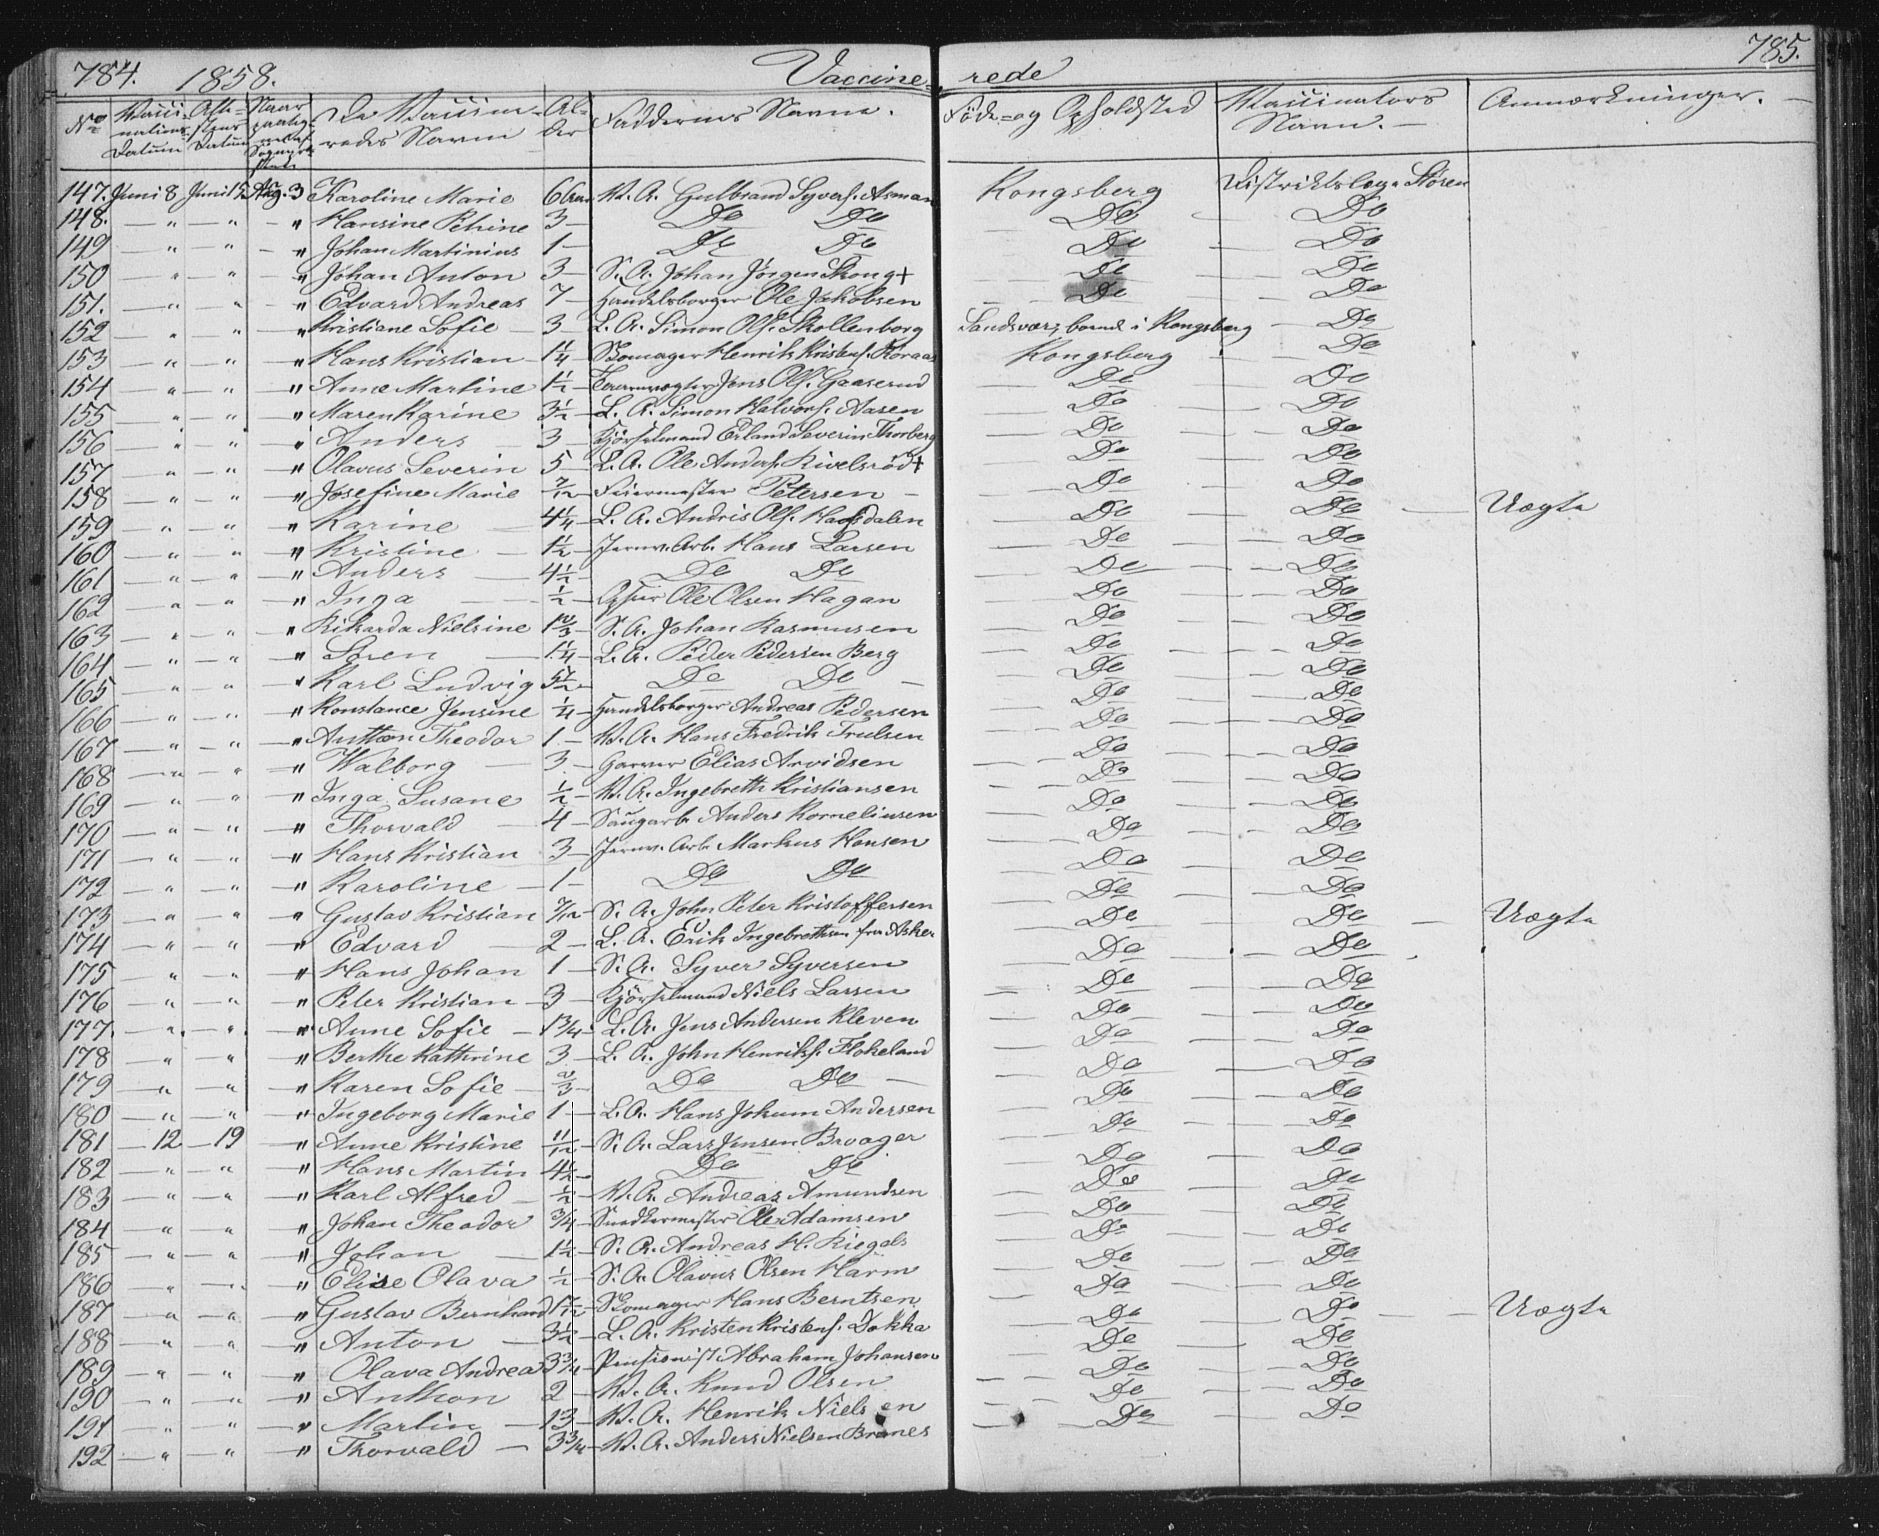 784. 1858. Vaccine- rede 785.
No Vacci- nations Datum Datum De Vaccine- redes Navne Al- der Faddernes Navne. Føde- og Opholdsted Vaccinators Navn. Anmærkninger.
147. Juni 8 Juni 15 Aug. 3 Karoline Marie 6 Gulbrand Syvers. Asman Kongsberg Distriktslæge Støren
148. — " — " — " Hansine Petrine 3 — Do Do Do Do
149 — " — " — " Johan Martinius 1 — Do Do Do Do
150 " — " — " Johan Anton 3 — S. A. Johan Jörgen Skong + Do Do
151. — " — " — " Edvard Andreas 7 — Handelsborger Ole Jakobsen Do Do
152 — " — " — " Kristiane Sofie — 3 — L. A. Simon Ols. Skollenborg Sandsvær, boende i Kongsberg — Do
153 — " — " — " Hans Kristian 1 1/4 Skomager Henrik Kristens. Kongsberg Do
154 — " — " — " Anne Martine 1 1/2 — Jens Ols. Gaaserud Do Do
155 — " — " — " Maren Karine 3 1/2 — L. A. Simon Halvors. Aasen Do Do
156 — " — " — " Anders 3 — Kjörselmand Erland Severin Thorberg Do Do
157 — " — " — " Olavus Severin 5 — L. A. Ole Anders. Kivelsröd + Do Do
158 — " — " — " Josefine Marie 7/12 — Feiermester Petersen — Do Do
159 — " — " — " Karine — 4 1/4 — L. A. Andris Ols. Do Do — Uægte
160 — " — " — " Kristine — 1 1/2 — Jernv. Arb. Hans Larsen Do Do
161 — " — " — " Anders — 4 1/2 — Do Do Do Do
162 " — " — " Inga — 1/2 — Ole Olsen Hagan Do Do
163 — " — " — " Rikarda Nielsine 1 2/3 — S. A. Johan Rasmussen Do Do
164 — " — " — " Sören — 1 1/4 — L. A. Peder Pedersen Berg Do Do
165 " — " — " Karl Ludvig Do Do — Do Do
166 — " — " — " Konstance Jensine 1/4 — Handelsborger Andreas Pedersen Do Do
167 — " — " — " Anthon Theodor 1 — Hans Fredrik Trulsen Do Do
168 — " — " — " Walborg — 3 — Garver Elias Arvidsen Do Do
169 — " — " — " Inga Susane 1/2 — Ingebreth Kristiansen Do Do
170 " — " — " Thorvald — 4 — Saugarb. Anders Korneliusen Do Do
171 — " — " — " Hans Kristian 3 — Jernv. Arb. Markus Hansen Do Do
172 — " — " — " Karoline — 1 — Do Do Do Do
173 — " — " — " Gustav Kristian 7/12 — S. A. John Peter Kristoffersen Do Do
174 — " — " — " Edvard — 2 — L. A. Erik Ingebrethsen fra Asker Do Do — Uægte
175 " — " — " Hans Johan 1 — S. A. Syver Syversen Do Do
176 — " — " — " Peter Kristian — 3 — Kjörselmand Niels Larsen Do Do
177. — " — " — " Anne Sofie — 1 3/4 — L. A. Jens Andersen Kleven Do Do
178 " — " — " Berthe Kathrine 3 — L. A. John Henriks. Flokeland Do Do
179 — " — " — " Karen Sofie — 2/3 — Do Do — Do Do
180 — " — " — " Ingeborg Marie 1 — L. A. Hans Johan Andersen Do Do
181 — 12 — 19 — " Anne Kristine 11/12 — S. A. Lars Jensen Broager Do Do
182 — " — " — " Hans Martin 4 1/2 — Do Do Do Do
183 — " — " — " Karl Alfred — 1/2 — Andreas Amundsen Do Do
184 — " — " — " Johan Theodor 3/4 — Snedkermester Ole Adamsen Do Do
185 — " — " — " Johan — 1 1/2 — S. A. Andreas H. Riegels Do Do
186 " — " — " Elise Olava 1/2 — S. A. Olavus Olsen Harm Do Do
187 — " — " — " Gustav Bernhard Skomager Hans Berntsen Do Do
188 — " — " — " Anton — 3 1/2 — L. A. Kristen Kristens. Dokka Do Do — Uægte
189 — " — " — " Olava Andrea 3 3/4 — Pensionist Abraham Johansen Do Do
190 — " — " — " Anthon 2 — Knud Olsen Do Do
191 — " — " — " Martin — 13 — Henrik Nielsen Do Do
192 — " — " — " Thorvald — 3 3/4 — Anders Nielsen Do Do